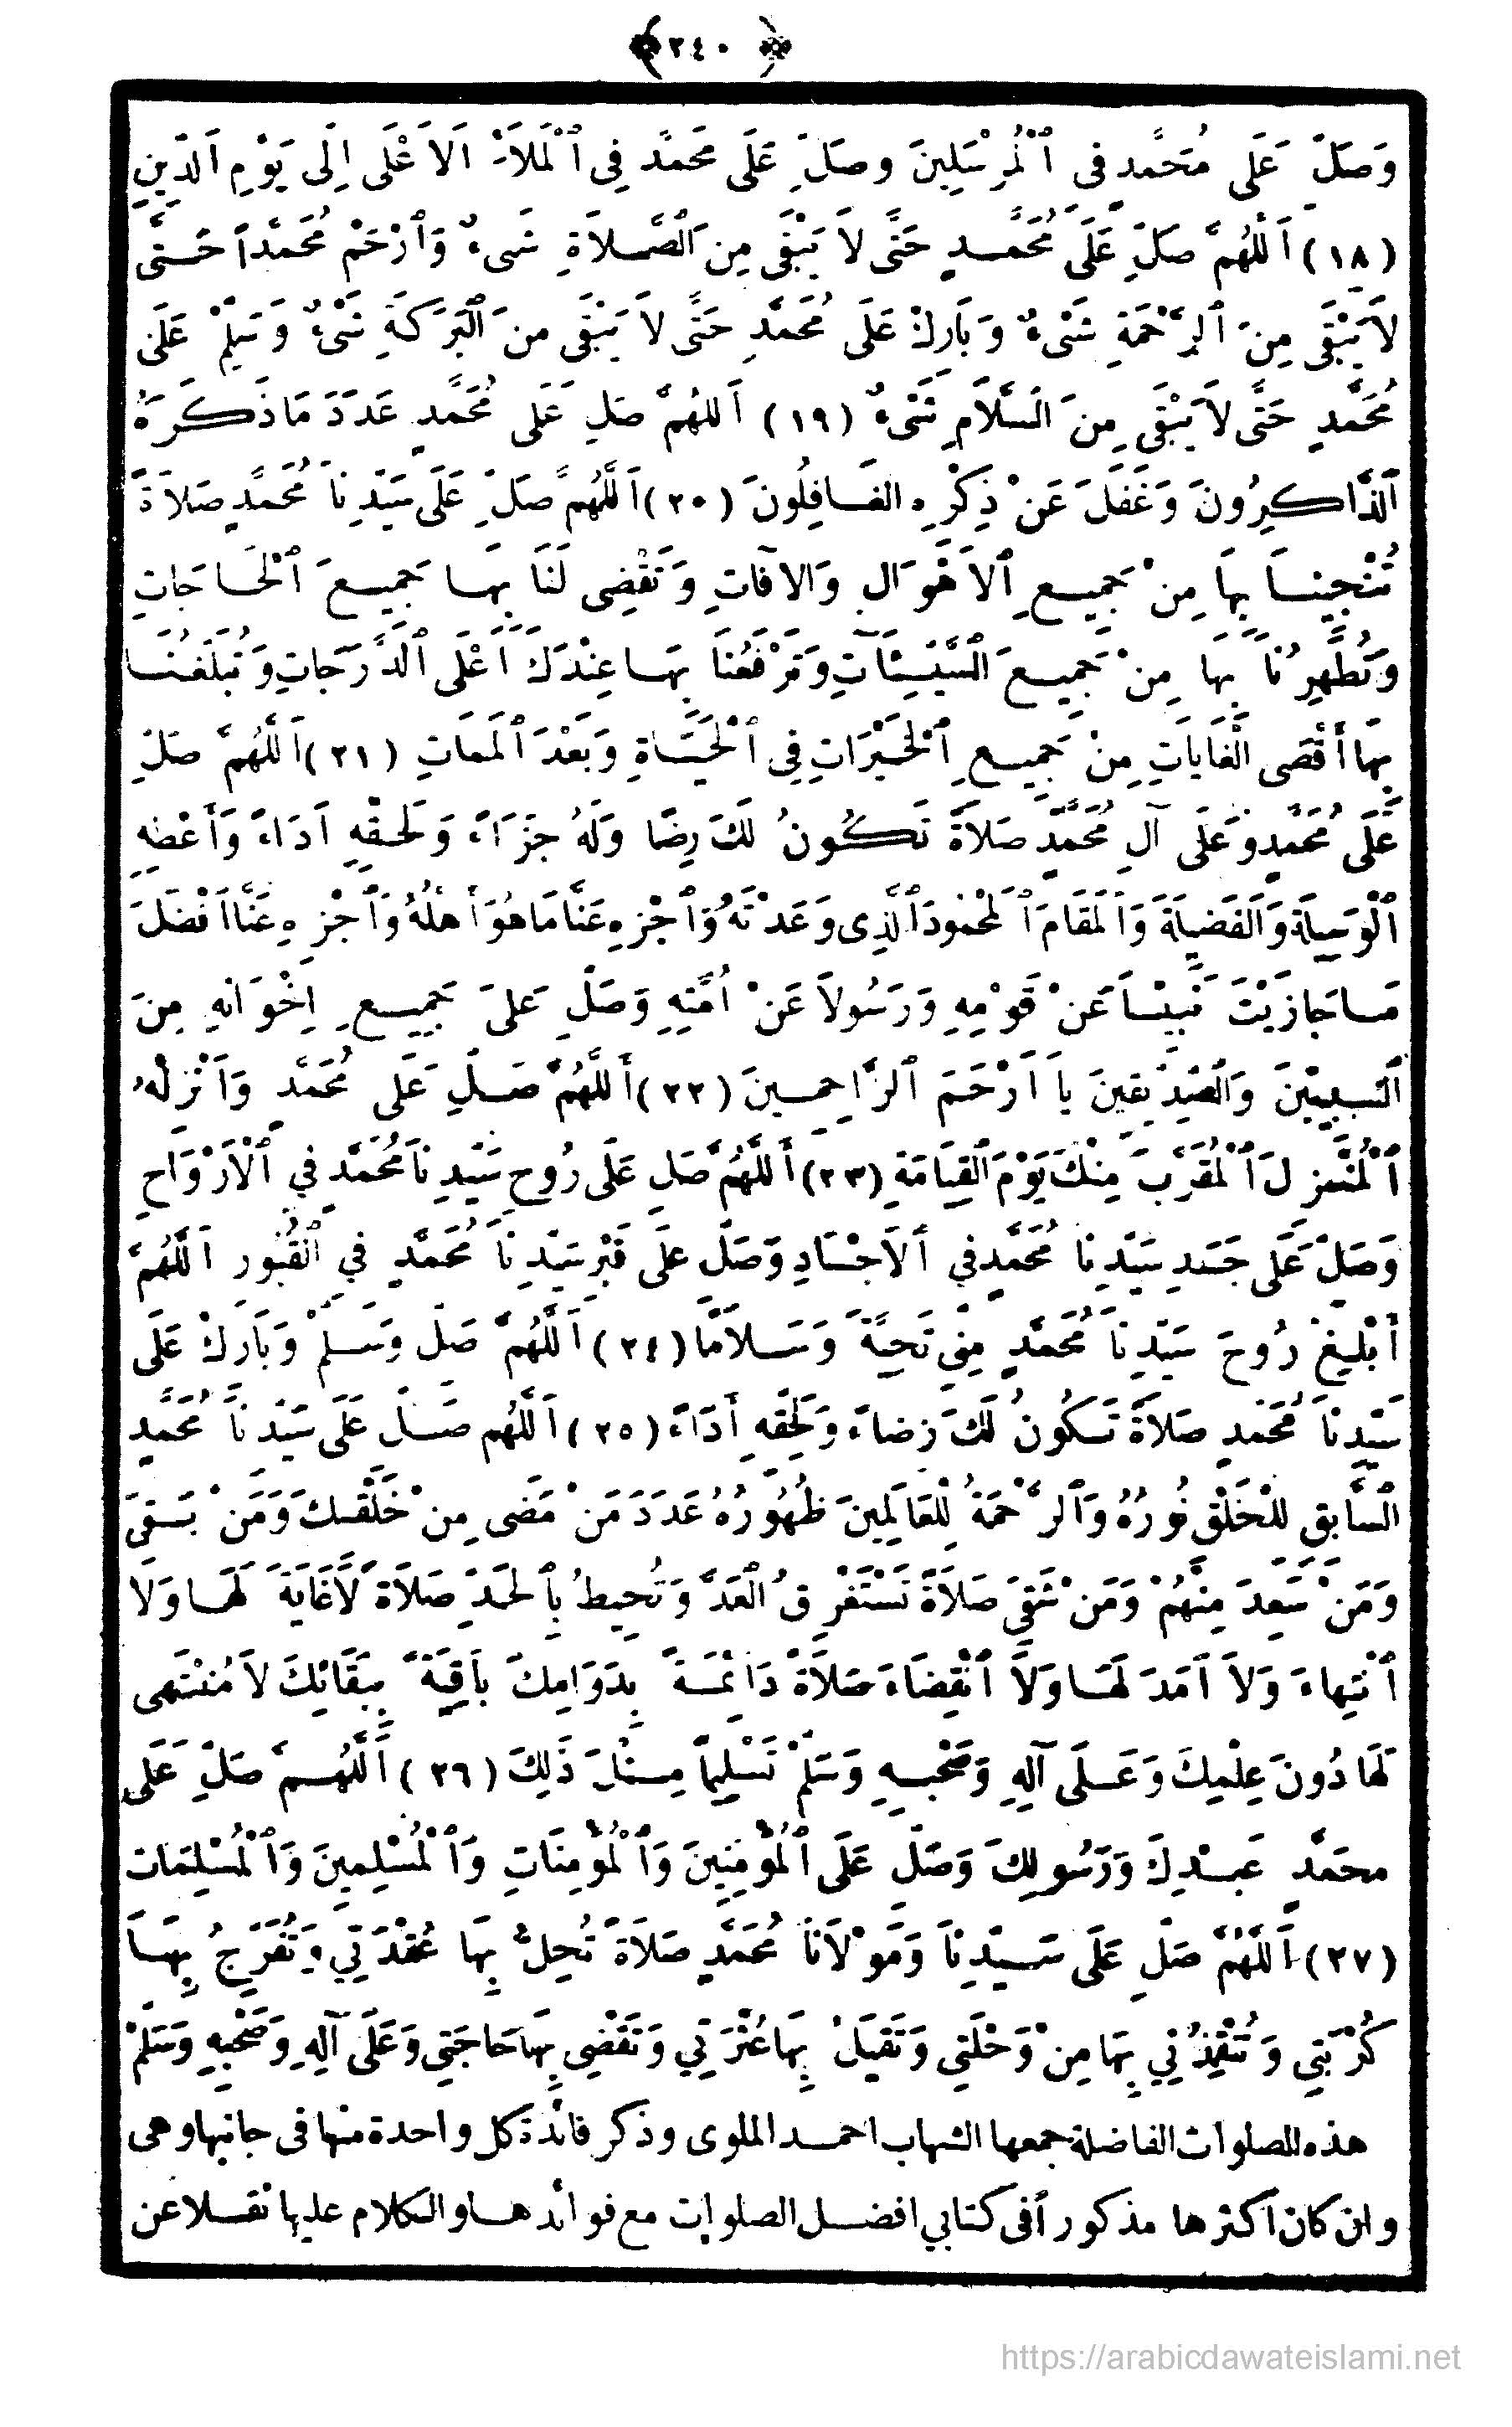 ﴿٢٤٠﴾
وَصَلِّ عَلَى مُحَمَّدٍ فِى ٱلْمُرْسَلِينَ وصَلِّ عَلَى مُحَمَّدٍ فِى ٱلْمَلَإِ الاَعْلَى اِلَى يَوْمِ الَدِّينِ
(١٨) اَللّٰهُمَّ صَلِّ عَلَى مُحَمَّدٍ حَتَّى لاَ يَبْقَى مِنَ الصَّلاَةِ شَىءٌ وَٱرْحَمْ مُحَمَّداً حَتَّى
لاَ يَبْقَى مِنَ ٱلرَّحْمَةِ شَىْءٌ وَبَارِكْ عَلَى مُحَمَّدٍ حَتَّى لاَ يَبْقَى مِنَ الْبَرَكَةِ شَىْءٌ وَسَلِّمْ عَلَى
مُحَمَّدٍ حَتَّى لاَ يَبْقَى مِنَ السَّلاَمِ شَىْءٌ (١٩) اَللهُمَّ صَلِّ عَلَى مُحَمَّدٍ عَدَدَ مَا ذَكَرَهُ
ٱلذَّاكِرُونَ وَغَفَلَ عَنْ ذِكْرِهِ الغَافِلُونَ (٢٠) اَللّٰهُمَّ صَلِّ عَلَى سَيِّدِنَا مُحَمَّدٍ صَلاَةً
تُنْجِينَا بِهَا مِنْ جَمِيعِ ٱلاَهْوَالِ وَالافَاتِ وَتَقْضِى لَنَا بِهَا جَمِيعَ ٱلْحَاجَاتِ
وَتُطَهِّرُنَا بِهَا مِنْ جَمِيعِ السَّيِّئَاتِ وَتَرْفَعُنَا بِهَا عِنْدَكَ اَعْلَى ٱلدَّرَجَاتِ وَتُبَلِّغُنَا
بِهَا أَقْصَى الْغَايَاتِ مِنْ جَمِيعِ ٱلْخَيْرَاتِ فِى ٱلْحَيَاةِ وَبَعْدَ ٱلْمَمَاتِ (٢١) اَللّٰهُمَّ صَلِّ
عَلَى مُحَمَّدٍ وَعَلَى آلِ مُحَمَّدٍ صَلاَةً تَكُونُ لَكَ رِضًا وَلَهُ جَزَاءً وَلِحَقِّهِ اَدَاءً وَأَعْطِهِ
ٱلْوَسِيلَةَ وَالْفَضِيلَةَ وَالْمَقَامَ ٱلْمَحْمُودَ ٱلَّذِى وَعَدْتَهُ وَٱجْزِهِ عَنَّا مَا هُوَ أَهْلُهُ وَٱجْزِهِ عَنَّا اَفْضَلَ
مَا جَازَيْتَ نَبِيًّا عَنْ قَوْمِهِ وَرَسُولاً عَنْ اُمَّتِهِ وَصَلِّ عَلَى جَمِيعِ اِخْوَانِهِ مِنَ
النَّبِيِّينَ وَالصِّدِّيقِينَ يَا اَرْحَمَ ٱلرَّاحِمِينَ (٢٢) أَللّٰهُمَّ صَلِّ عَلَى مُحَمَّدٍ وَاَنْزِلْهُ
ٱلْمُنْزَلَ ٱلْمُقَرَّبَ مِنْكَ يَوْمَ القِيَامَةِ (٢٣) أَللّٰهُمَّ صَلِّ عَلَى رُوحِ سَيِّدِنَا مُحَمَّدٍ فِي ٱلْأَرْوَاحِ
وَصَلِّ عَلَى جَسَدِ سَيِّدِنَا مُحَمَّدٍ فِي ٱلاَجْسَادِ وَصَلِّ عَلَى قَبْرِ سَيِّدِنَا مُحَمَّدٍ فِي الْقُبُورِ اَللّٰهُمَّ
أَبْلِغْ رُوحَ سَيِّدِنَا مُحَمَّدٍ مِنِّي تَحِيَّةً وَسَلاَمًا (٢٤) اَللّٰهُمَّ صَلِّ وَسَلِّمْ وَبَارِكْ عَلَى
سَيِّدِنَا مُحَمَّدٍ صَلاَةً تَكُونُ لَكَ رِضاءً وَلِحَقِّهِ أَدَاءً (٢٥) اَللّٰهُمَّ صَلِّ عَلَى سَيِّدِنَا مُحَمَّدٍ
السَّابِقِ لِلْخَلْقِ نُورُهُ وَٱلرَّحْمَةُ لِلْعَالَمِينَ ظُهُورُهُ عَدَدَ مَنْ مَضَى مِنْ خَلْقِكَ وَمَنْ بَقِىَ
وَمَنْ سَعِدَ مِنْهُمْ وَمَنْ شَقِىَ صَلاَةً تَسْتَغْرِقُ الْعَدَّ وَتُحِيطُ بِٱلْحَدِّ صَلاَةً لاَ غَايَةَ لَهَا وَلاَ
ٱنْتِهاءَ وَلاَ اَمَدَ لَهَا وَلاَ ٱنْقِضَاءَ صَلاَةً دَائِمَةً بِدَوَامِكَ بَاقِيَةً بِبَقَائِكَ لاَ مُنْتَهَى
لَهَا دُونَ عِلْمِكَ وَعَلَى آلِهِ وَصَحْبِهِ وَسَلِّمْ تَسْلِيماً مِثْلَ ذَلِكَ (٢٦) اَللّٰهُمَّ صَلِّ عَلَى
محَمَّدٍ عَبْدِكَ وَرَسُولِكَ وَصَلِّ عَلَى ٱلْمُؤْمِنِينَ وَٱلْمُؤْمِنَاتِ وَٱلْمُسْلِمِينَ وَٱلْمُسْلِمَات
(٢٧) أَللّٰهُمَّ صَلِّ عَلَى سَيِّدِنَا وَمَوْلاَنَا مُحَمَّدٍ صَلاَةً تُحِلُّ بِهَا عُقْدَتِي وَتُفَرِّجُ بِهَا
كُرْبَتِي وَتُنْقِذُنِي بِهَا مِنْ وَحْلَتِي وَتَقِيلُ بِهَا عُثْرَتِي وَتَقْضِى بِهَا حَاجَتِي وَعَلَى آلِهِ وَصَحْبِهِ وَسَلِّمْ
هذه الصلوات الفاضلة جمعها الشهاب احمد الملوى وذكر فائدة كل واحدة منها فى جانبها وهى
وان كان اكثرها مذكورا فى كتابي افضل الصلوات مع فوائدها والكلام عليها نقلا عن
https://arabicdawateislami.net